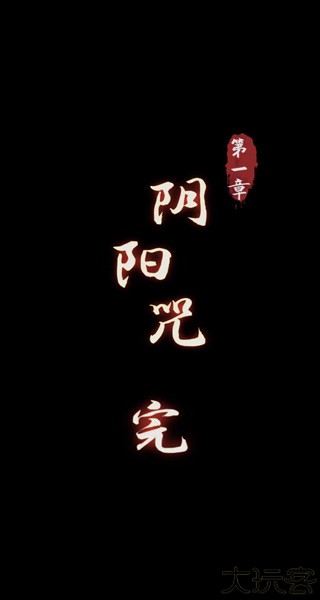 第一章
阴阳咒
完
大玩客